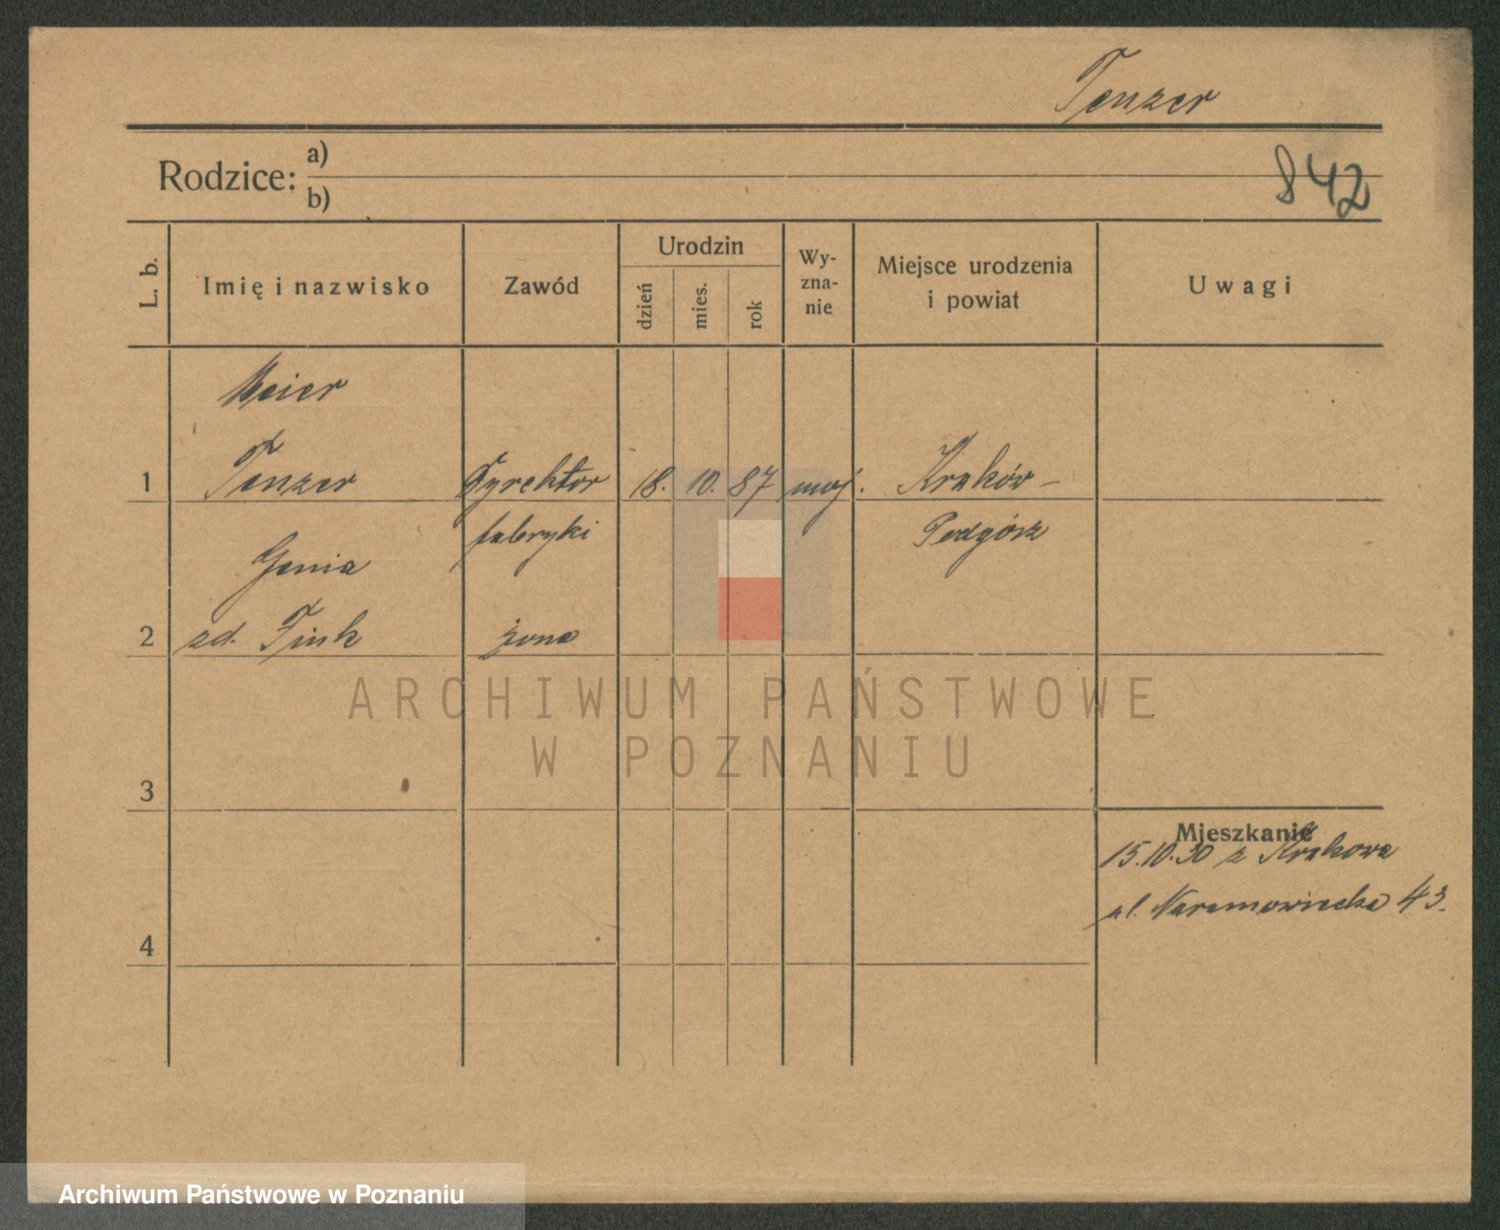 Tenzer
Rodzice: a)
b)
842
L. b.
Imię i nazwisko
Zawód
Urodzin
dzień
mies.
rok
Wy-
zna-
nie
Miejsce urodzenia
i powiat
Uwagi
Meier
1 Tenzer Dyrektor 18. 10. 87 moj. Kraków –
fabryki Podgórz
Genia
2 zd. Fink żona
ARCHIWUM PAŃSTWOWE
W POZNANIU
3
Mieszkanie
15.10.30 z Krakowa
ul. Naramowicka 43.
4
Archiwum Państwowe w Poznaniu